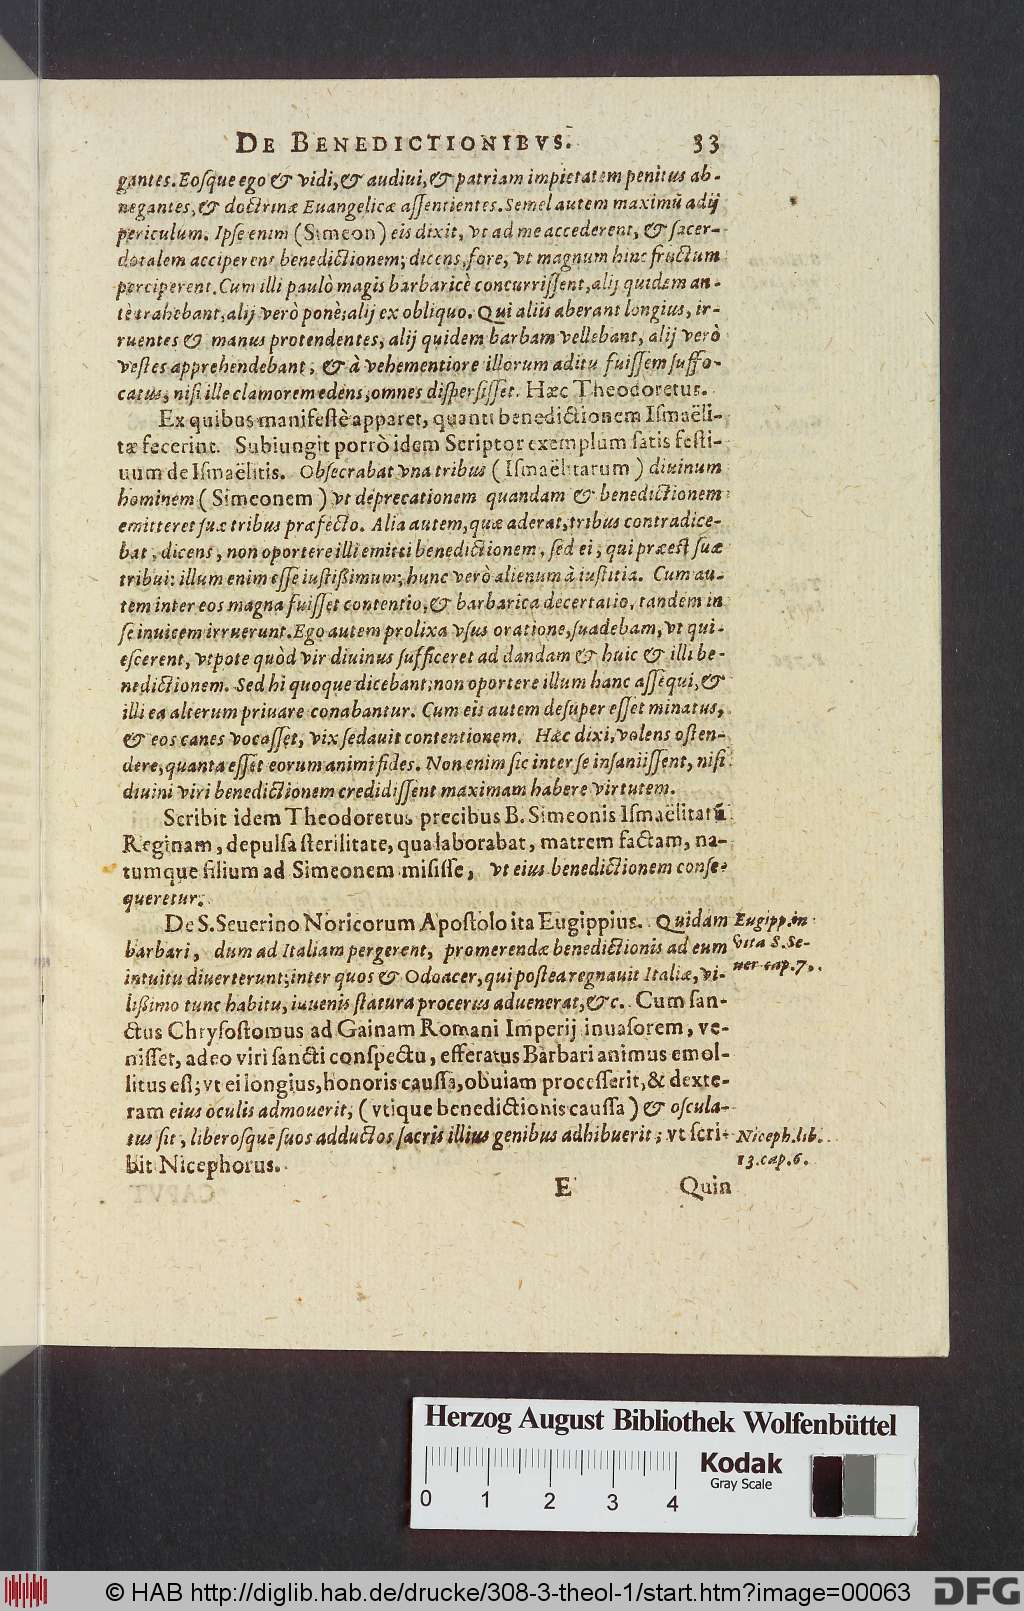 DE BENEDICTIONIBVS. 33
gantes. Eosque ego & vidi, & audiui, & patriam impietatem penitus ab-
negantes, & doctrinæ Euangelicæ assentientes. Semel autem maximū adij
periculum. Ipse enim (Simeon) eis dixit, vt ad me accederent, & sacer-
dotalem acciperent benedictionem; dicens, fore, vt magnum hinc fructum
perciperent. Cum illi paulò magis barbaricè concurrissent, alij quidem an-
tè trahebant, alij verò ponè; alij ex obliquo. Qui aliis aberant longius, ir-
ruentes & manus protendentes, alij quidem barbam vellebant, alij verò
vestes apprehendebant, & à vehementiore illorum aditu fuissem suffo-
catus, nisi ille clamorem edens, omnes dispersisset. Hæc Theodoretus.
Ex quibus manifestè apparet, quanti benedictionem Ismaëli-
tæ fecerint. Subiungit porrò idem Scriptor exemplum satis festi-
uum de Ismaëlitis. Obsecrabat vna tribus (Ismaëlitarum) diuinum
hominem (Simeonem) vt deprecationem quandam & benedictionem
emitteret suæ tribus præfecto. Alia autem, quæ aderat, tribus contradice-
bat, dicens, non oportere illi emitti benedictionem, sed ei, qui præest suæ
tribui: illum enim esse iustißimum; hunc verò alienum à iustitia. Cum au-
tem inter eos magna fuisset contentio, & barbarica decertatio, tandem in
se inuicem irruerunt. Ego autem prolixa vsus oratione, suadebam, vt qui-
escerent, vtpote quòd vir diuinus sufficeret ad dandam & huic & illi be-
nedictionem. Sed hi quoque dicebant; non oportere illum hanc assequi, &
illi ea alterum priuare conabantur. Cum eis autem desuper esset minatus,
& eos canes vocasset, vix sedauit contentionem. Hæc dixi, volens osten-
dere, quanta esset eorum animi fides. Non enim sic inter se insaniissent, nisi
diuini viri benedictionem credidissent maximam habere virtutem.
Scribit idem Theodoretus precibus B. Simeonis Ismaëlitarū
Reginam, depulsa sterilitate, qua laborabat, matrem factam, na-
tumque filium ad Simeonem misisse, vt eius benedictionem conse-
queretur.
De S. Seuerino Noricorum Apostolo ita Eugippius. Quidam
barbari, dum ad Italiam pergerent, promerendæ benedictionis ad eum
intuitu diuerterunt; inter quos & Odoacer, qui postea regnauit Italiæ, vi-
lißimo tunc habitu, iuuenis statura procerus aduenerat, &c. Cum san-
ctus Chrysostomus ad Gainam Romani Imperij inuasorem, ve-
nisset, adeo viri sancti conspectu, efferatus Barbari animus emol-
litus est; vt ei longius, honoris caussa, obuiam processerit, & dexte-
ram eius oculis admouerit, (vtique benedictionis caussa) & oscula-
tus sit, liberosque suos adductos sacris illius genibus adhibuerit; vt scri-
bit Nicephorus.
Eugipp. in
vita S. Se-
uer. cap. 7.
Niceph. lib.
13. cap. 6.
E Quin
Herzog August Bibliothek Wolfenbüttel
Kodak
Gray Scale
0 1 2 3 4
© HAB http://diglib.hab.de/drucke/308-3-theol-1/start.htm?image=00063
DFG